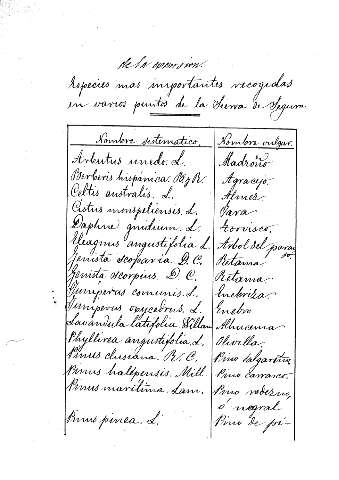 de la excursion.
Especies mas importantes recogidas
en varios puntos de la Sierra de Segura
Nombre sistematico. Nombre vulgar.
Arbutus unedo. L. Madroño
Berberis hispanica. B. y R. Agracejo.
Celtis australis. L. Almez
Cistus monspeliensis. L. Jara
Daphne gnidium. L. Torvisco.
Eleagnus angustifolia L. Arbol del parai
so.
Genista scoparia. D. C. Retama
Genista scorpius. D. C. Retama.
Juniperus comunis. L. Enebriza
Juniperus oxycedrus. L. Enebro
Lavandula latifolia. Willan Alhucema
Phyllirea angustifolia. L. Olivilla.
Pinus clusiana. R. C. Pino salgareño
Pinus halepensis. Mill. Pino carrasco.
Pinus maritima. Lam. Pino rodezno,
ó negral.
Pinus pinea. L. Pino de pi-